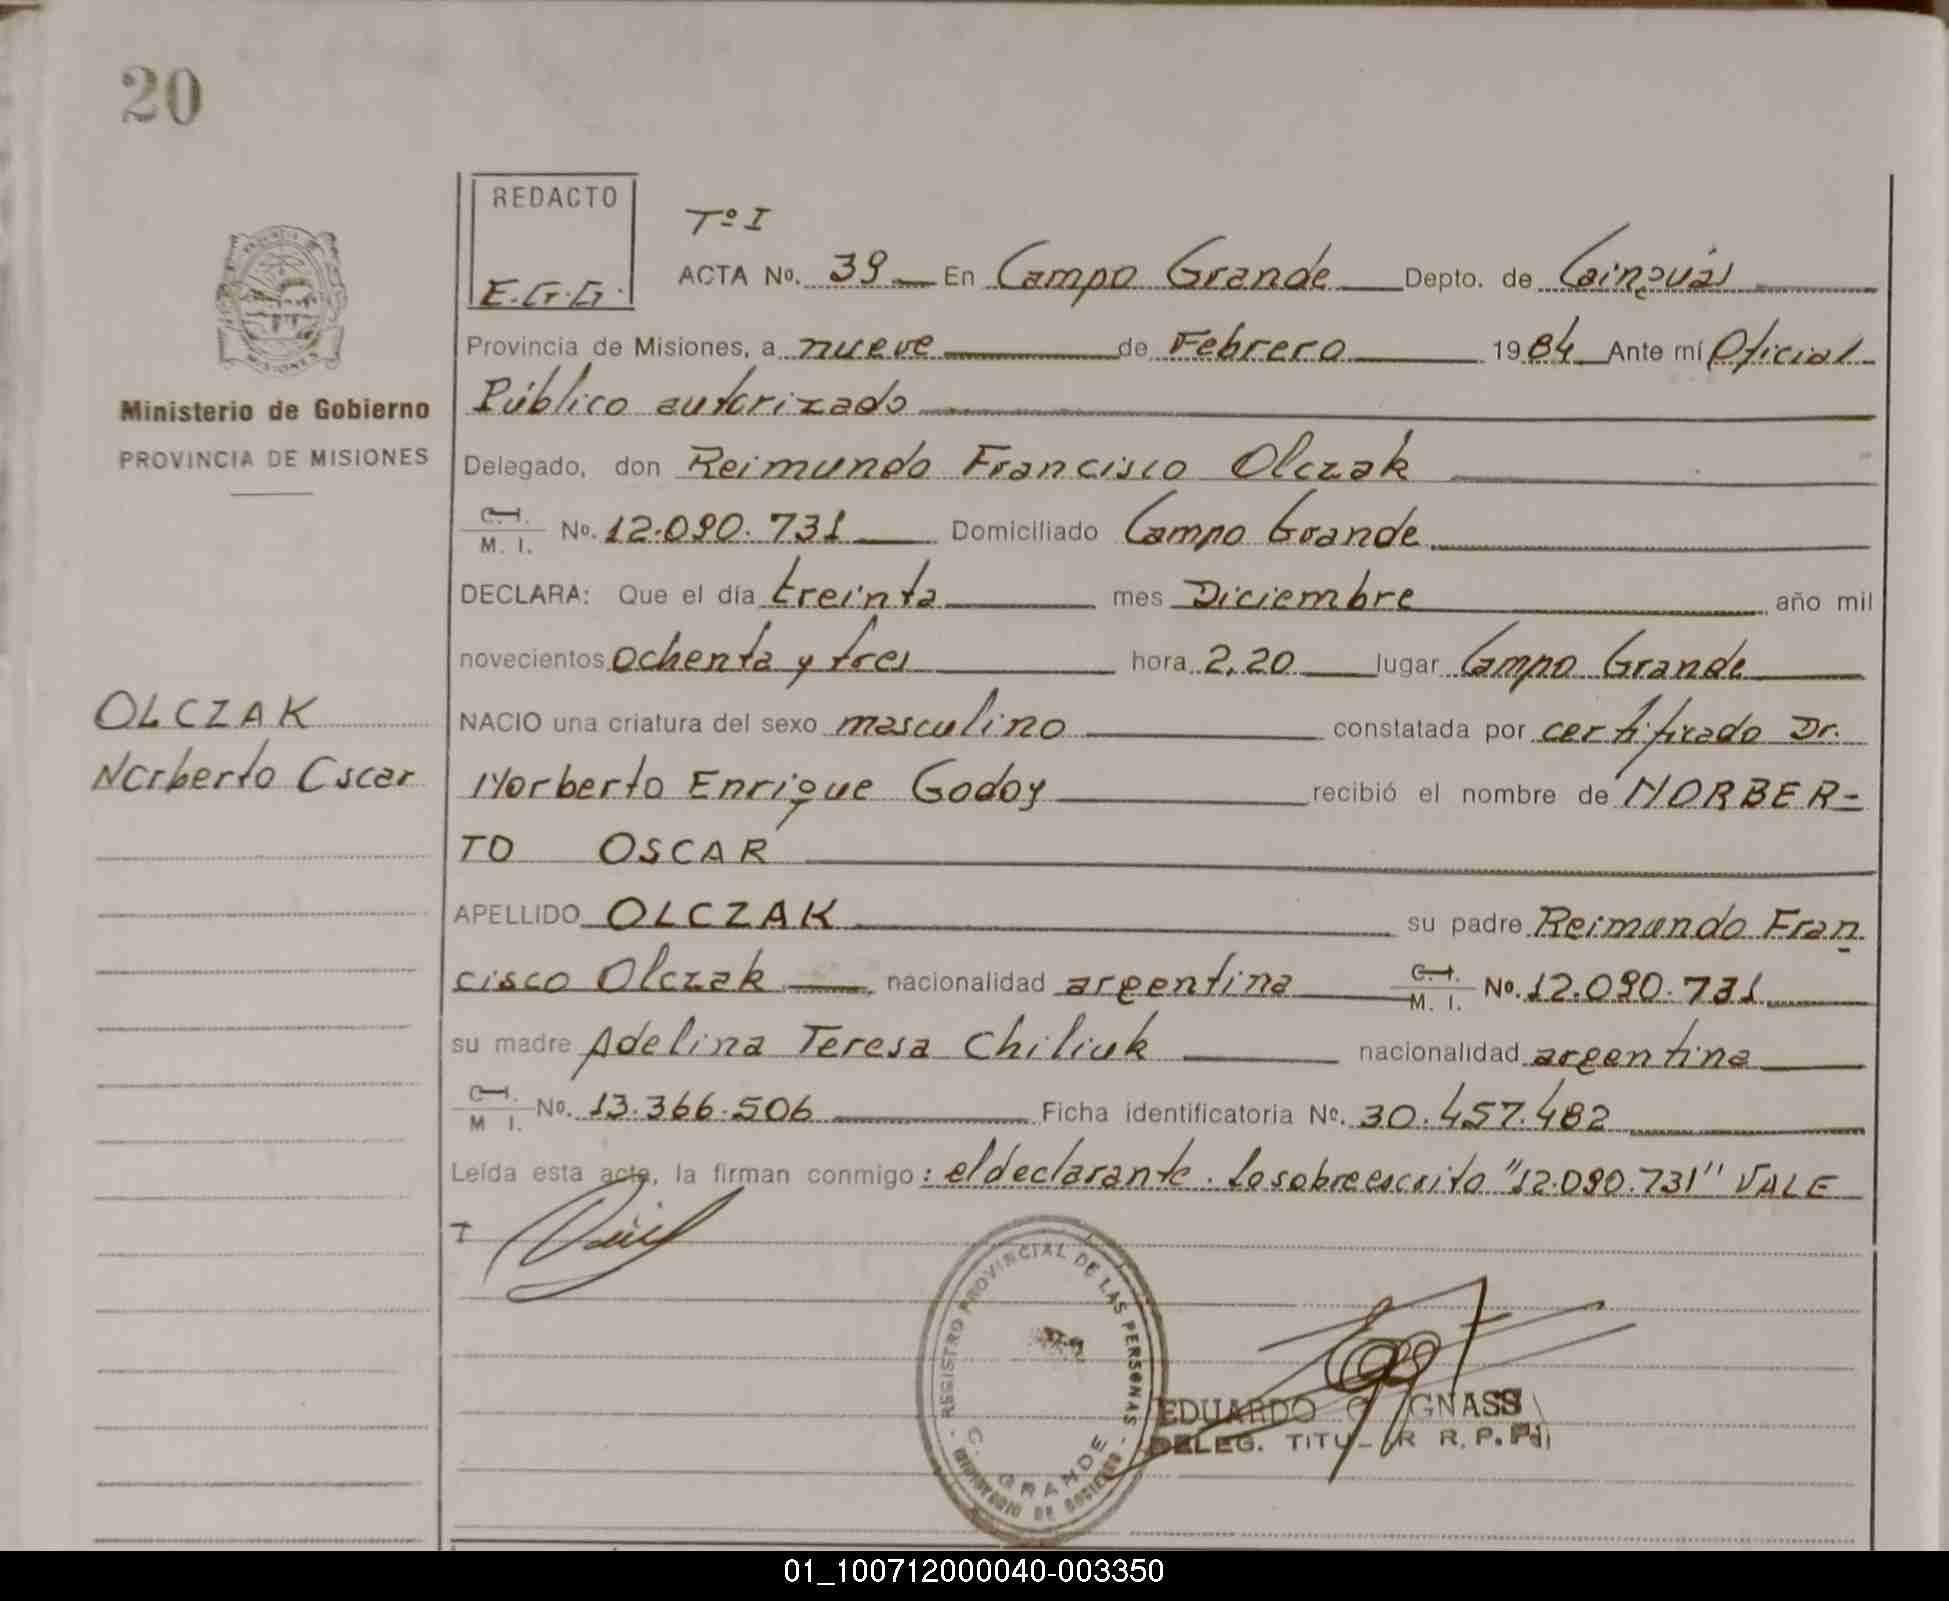 20
REDACTO
E.G.G.
Tº I
ACTA Nº. 39 En Campo Grande Depto. de Cainguás
Provincia de Misiones, a nueve de Febrero 1984 Ante mí Oficial
Público autorizado
Ministerio de Gobierno
PROVINCIA DE MISIONES
Delegado, don Reimundo Francisco Olczak
C. I. M. I. No. 12.090.731 Domiciliado Campo Grande
DECLARA: Que el día treinta mes Diciembre año mil
novecientos ochenta y tres hora 2,20 lugar Campo Grande
OLCZAK
Norberto Oscar
NACIO una criatura del sexo masculino constatada por certificado Dr.
Norberto Enrique Godoy recibió el nombre de NORBER-
TO OSCAR
APELLIDO OLCZAK su padre Reimundo Fran
cisco Olczak nacionalidad argentina C. I. M. I. No. 12.090.731
su madre Adelina Teresa Chiliuk nacionalidad argentina
C. I. M I. No. 13.366.506 Ficha identificatoria Nº. 30.457.482
Leída esta acta, la firman conmigo: el declarante. Lo sobreescrito "12.090.731" VALE
REGISTRO PROVINCIAL DE LAS PERSONAS
C. GRANDE
EDUARDO G GNASS
DELEG. R. P. P.
01_100712000040-003350